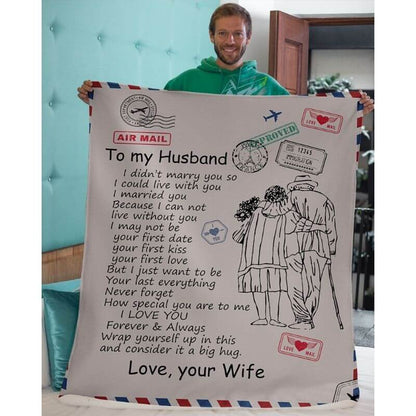 AIR MAIL
APPROVED
LOVE MAIL
12345
To my Husband
I didn't marry you so
I could live with you
I married you
Because I can not
live without you
I may not be
your first date
your first kiss
your first love
But I just want to be
Your last everything
Never forget
How special you are to me
I LOVE YOU
Forever & Always
Wrap yourself up in this
and consider it a big hug.
LOVE MAIL
Love, your Wife